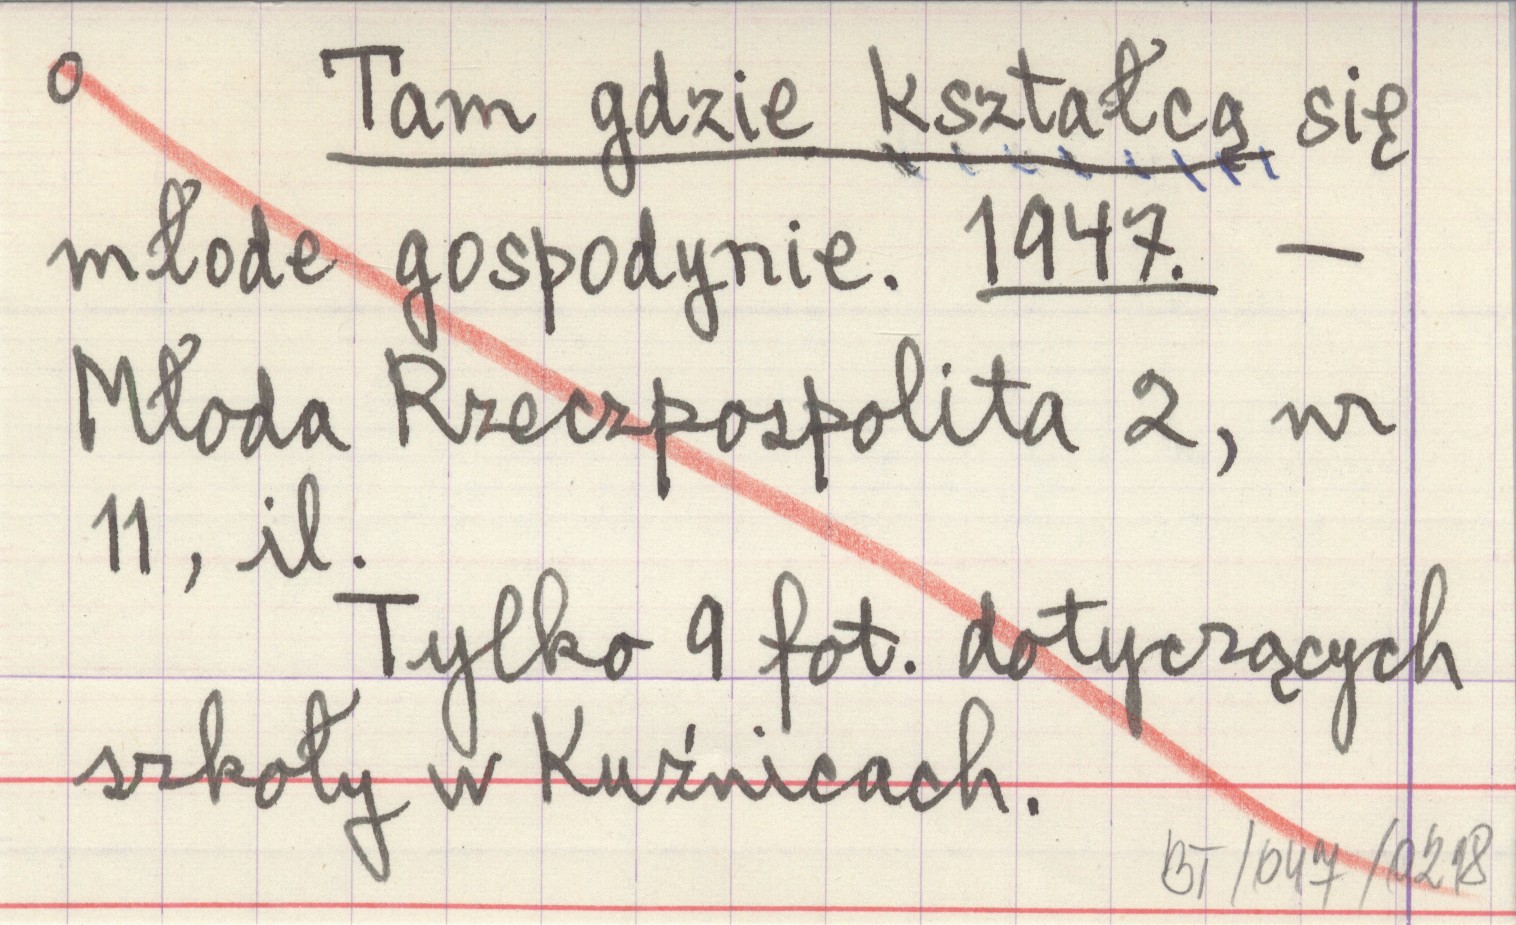 o Tam gdzie kształcą się
młode gospodynie. 1947. —
Młoda Rzeczpospolita 2, nr
11, il.
Tylko 9 fot. dotyczących
szkoły w Kuźnicach.
BT/047/0218